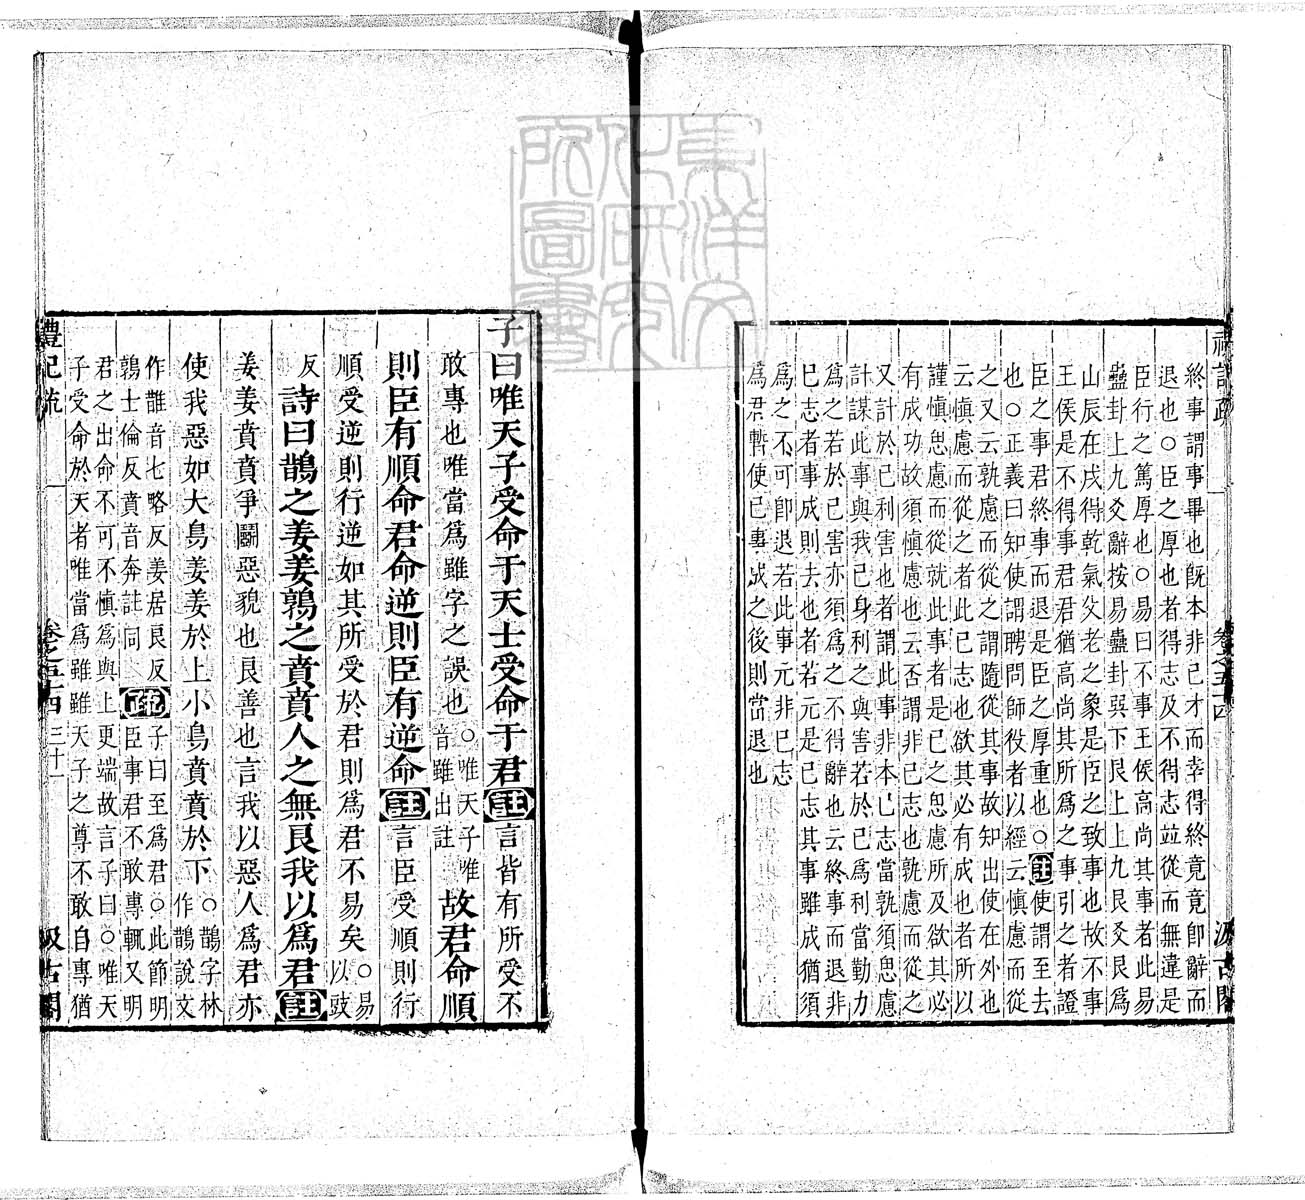 禮記疏　卷之五十四　汲古閣
終事謂事畢也旣本非已才而幸得終竟竟卽辭而
退也○臣之厚也者得志及不得志並從而無違是
臣行之篤厚也○易曰不事王侯高尚其事者此易
蠱卦上九爻辭按易蠱卦巽下艮上上九艮爻艮爲
山辰在戌得乾氣父老之象是臣之致事也故不事
王侯是不得事君君猶高尚其所爲之事引之者證
臣之事君終事而退是臣之厚重也○註使謂至去
也○正義曰知使謂聘問師役者以經云慎慮而從
之又云孰慮而從之謂隨從其事故知出使在外也
云慎慮而從之者此已志也欲其必有成也者所以
謹慎思慮而從就此事者是已之思慮所及欲其必
有成功故須慎慮也云否謂非已志也孰慮而從之
又計於已利害也者謂此事非本已志當孰須思慮
計謀此事與我已身利之與害若於已爲利當勤力
爲之若於已害亦須爲之不得辭也云終事而退非
已志者事成則去也者若元是已志其事雖成猶須
爲之不可卽退若此事元非已志
爲君暫使已事成之後則當退也
子曰唯天子受命于天士受命于君註言皆有所受不
敢專也唯當爲雖字之誤也○唯天子唯音雖出註故君命順
則臣有順命君命逆則臣有逆命註言臣受順則行
順受逆則行逆如其所受於君則爲君不易矣○易以豉
反詩曰鵲之姜姜鶉之賁賁人之無良我以爲君註
姜姜賁賁爭鬬惡貌也良善也言我以惡人爲君亦
使我惡如大鳥姜姜於上小鳥賁賁於下○鵲字林作䧿說文
作䧿音七略反姜居良反
鶉士倫反賁音奔註同疏子曰至爲君○此節明
臣事君不敢專輒又明
君之出命不可不慎爲與上更端故言子曰○唯天
子受命於天者唯當爲雖雖天子之尊不敢自專猶
禮記疏　卷之五十四　三十一　汲古閣
東洋文化研究所圖書